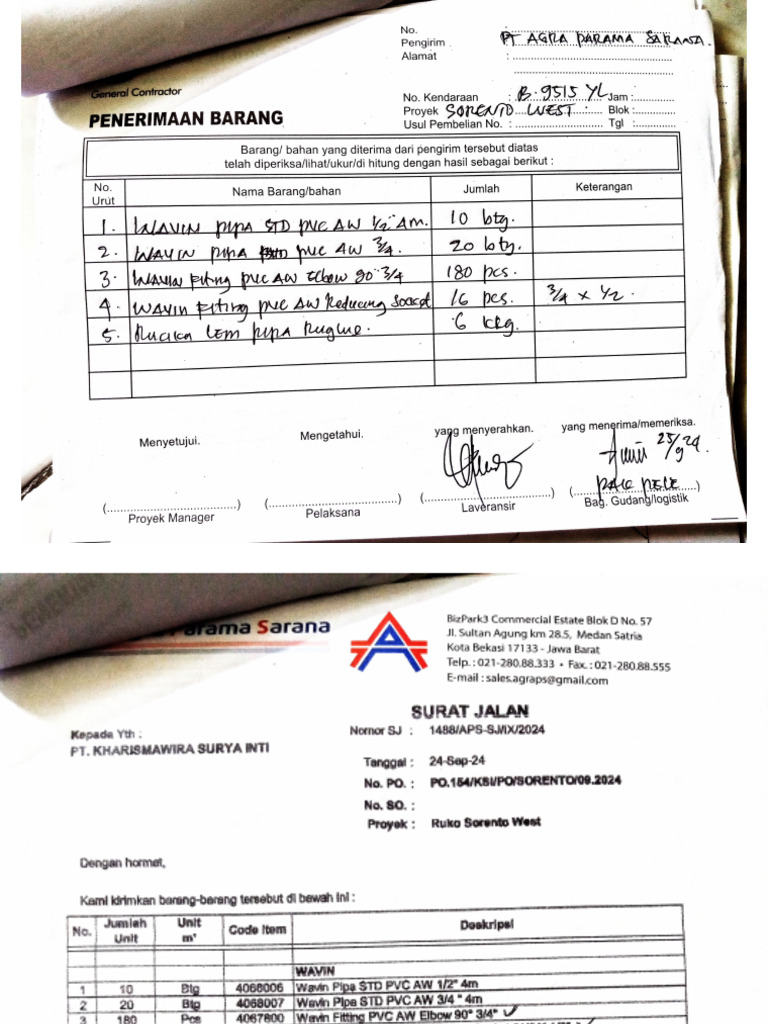 No.
Pengirim PT AGRA PARAMA SARANA.
Alamat :
:
General Contractor
No. Kendaraan : B. 9515 YL Jam :
PENERIMAAN BARANG
Proyek SORENTO WEST : Blok :
Usul Pembelian No. : Tgl :
Barang/ bahan yang diterima dari pengirim tersebut diatas
telah diperiksa/lihat/ukur/di hitung dengan hasil sebagai berikut :
No. Urut Nama Barang/bahan Jumlah Keterangan
1. WAVIN PIPA STD PVC AW 1/2" 4m. 10 btg.
2. WAVIN PIPA PVC AW 3/4. 20 btg.
3. WAVIN Fiting PVC AW Elbow 90° 3/4 180 pcs.
4. WAVIN Fiting PVC AW Reducing Socket 16 pcs. 3/4 x 1/2.
5. Rucika Lem PIPA Ruglue. 6 kg.
Menyetujui. Mengetahui. yang menyerahkan. yang menerima/memeriksa.
25/9 24.
(..............................) (..............................) (..............................) (..............................)
Proyek Manager Pelaksana Laveransir Bag. Gudang/logistik
Parama Sarana
BizPark3 Commercial Estate Blok D No. 57
Jl. Sultan Agung km 28.5, Medan Satria
Kota Bekasi 17133 - Jawa Barat
Telp. : 021-280.88.333 • Fax. : 021-280.88.555
E-mail : sales.agraps@gmail.com
SURAT JALAN
Kepada Yth :
Nomor SJ : 1488/APS-SJ/IX/2024
PT. KHARISMAWIRA SURYA INTI
Tanggal : 24-Sep-24
No. PO. : PO.154/KSI/PO/SORENTO/09.2024
No. SO. :
Proyek : Ruko Sorento West
Dengan hormat,
Kami kirimkan barang-barang tersebut di bawah ini :
No. Jumlah Unit Unit m' Code Item Deskripsi
WAVIN
1 10 Btg 4068006 Wavin Pipa STD PVC AW 1/2" 4m
2 20 Btg 4068007 Wavin Pipa STD PVC AW 3/4 " 4m
3 180 Pcs 4067800 Wavin Fitting PVC AW Elbow 90° 3/4" ✓